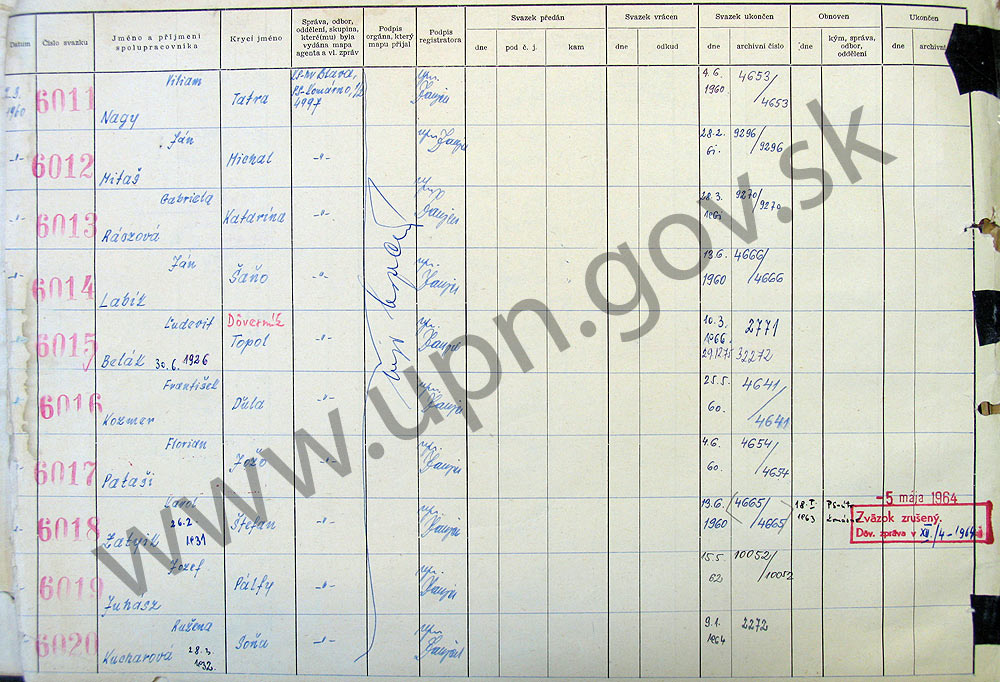 Datum
Číslo svazku
Jméno a příjmení spolupracovníka
Krycí jméno
Správa, odbor, oddělení, skupina, které(mu) byla vydána mapa agenta a vl. zpráv
Podpis orgána, který mapu přijal
Podpis registratora
Svazek předán
dne
pod č. j.
kam
Svazek vrácen
dne
odkud
Svazek ukončen
dne
archivní číslo
Obnoven
dne
kým, správa, odbor, oddělení
Ukončen
dne
archivní
1960
6011
Viliam
Nagy
Tatra
4997
4.6.
1960
4653/
4653
6012
Ján
Mitaš
Michal
-"-
28.2.
61.
9296/
9296
6013
Gabriela
Rászová
Katarína
-"-
28.3.
1961
9270/
9270
6014
Ján
Labík
Šaňo
-"-
13.6.
1960
4666/
4666
6015
Ľudevit
Belák 30.6.1926
Dôverník
Topol
-"-
10.3.
1966
2771
29.12.75
32272
6016
František
Kozmer
Ďula
-"-
25.5.
60.
4641/
4641
6017
Florian
Pataši
Jožo
-"-
4.6.
60.
4654/
4654
6018
Karol
26.2.
1931
Štefan
-"-
13.6.
1960
4665/
4665
18.I.
1963
-5 mája 1964
Zväzok zrušený.
Dôv. zpráva v XII/4-1964
6019
Jozef
Juhasz
Pálfy
-"-
15.5.
62
10052/
10052
6020
Ružena
Kucharová 28.3.
1932.
Soňa
-"-
9.1.
1964
2272
www.upn.gov.sk